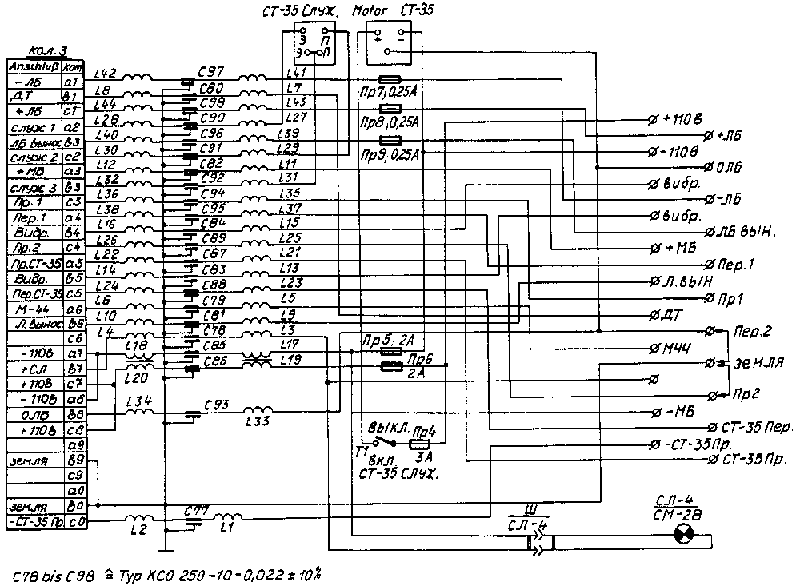 СТ-35 Служ. Motor СТ-35
З П + -
З П
КОЛ. 3
Anschluß кол
- ЛБ а1
Д.Т в1
+ ЛБ с1
служ 1 а2
ЛБ вынос в3
служ 2 с2
+МВ а3
служ 3 в3
Пр. 1 с3
Пер. 1 а4
Вибр. в4
Пр. 2 с4
Пр.СТ-35 а5
Вибр. в5
Пер.СТ-35 с5
М-44 а6
Л. вынос в6
с6
-110В а7
+СЛ в7
+110В с7
-110В а8
ОЛБ в8
+110В с8
а9
земля в9
с9
а0
земля в0
-СТ-35 Пр. с0
L42 C97 L41
L8 C80 L7
L44 C98 L43
L28 C90 L27
L40 C96 L39
L30 C91 L29
L12 C82 L11
L32 C92 L31
L36 C94 L35
L38 C95 L37
L16 C84 L15
L26 C89 L25
L22 C87 L21
L14 C83 L13
L24 C88 L23
L6 C79 L5
L10 C81 L9
L4 C78 L3
L18 C85 L17
L20 C86 L19
L34 C93 L33
L2 C77 L1
Пр7, 0,25А
Пр8, 0,25А
Пр9, 0,25А
Пр5, 2А
Пр6
2А
ВЫКЛ. Пр4
Т1 3А
Вкл.
СТ-35 Служ.
+110В
+ЛБ
-110В
ОЛБ
Вибр.
-ЛБ
Вибр.
ЛБ ВЫН.
+МВ
Пер.1
Л.ВЫН
Пр1
ДТ
Пер.2
М44
Земля
Пр2
-МВ
СТ-35 Пер.
-СТ-35Пр.
СТ-35 Пр.
Ш
СЛ-4
СЛ-4
СМ-28
C78 bis C98 ≙ Typ КСО 250-10-0,022 ± 10%